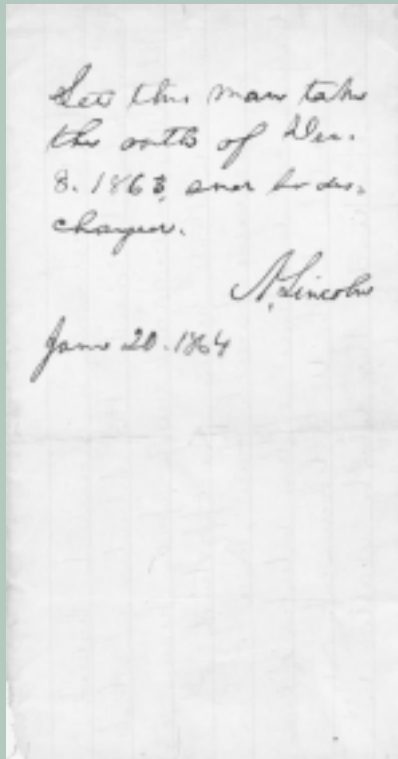 Let this man take
the oath of Dec.
8. 1863, and be dis-
charged.
A. Lincoln
June 20. 1864